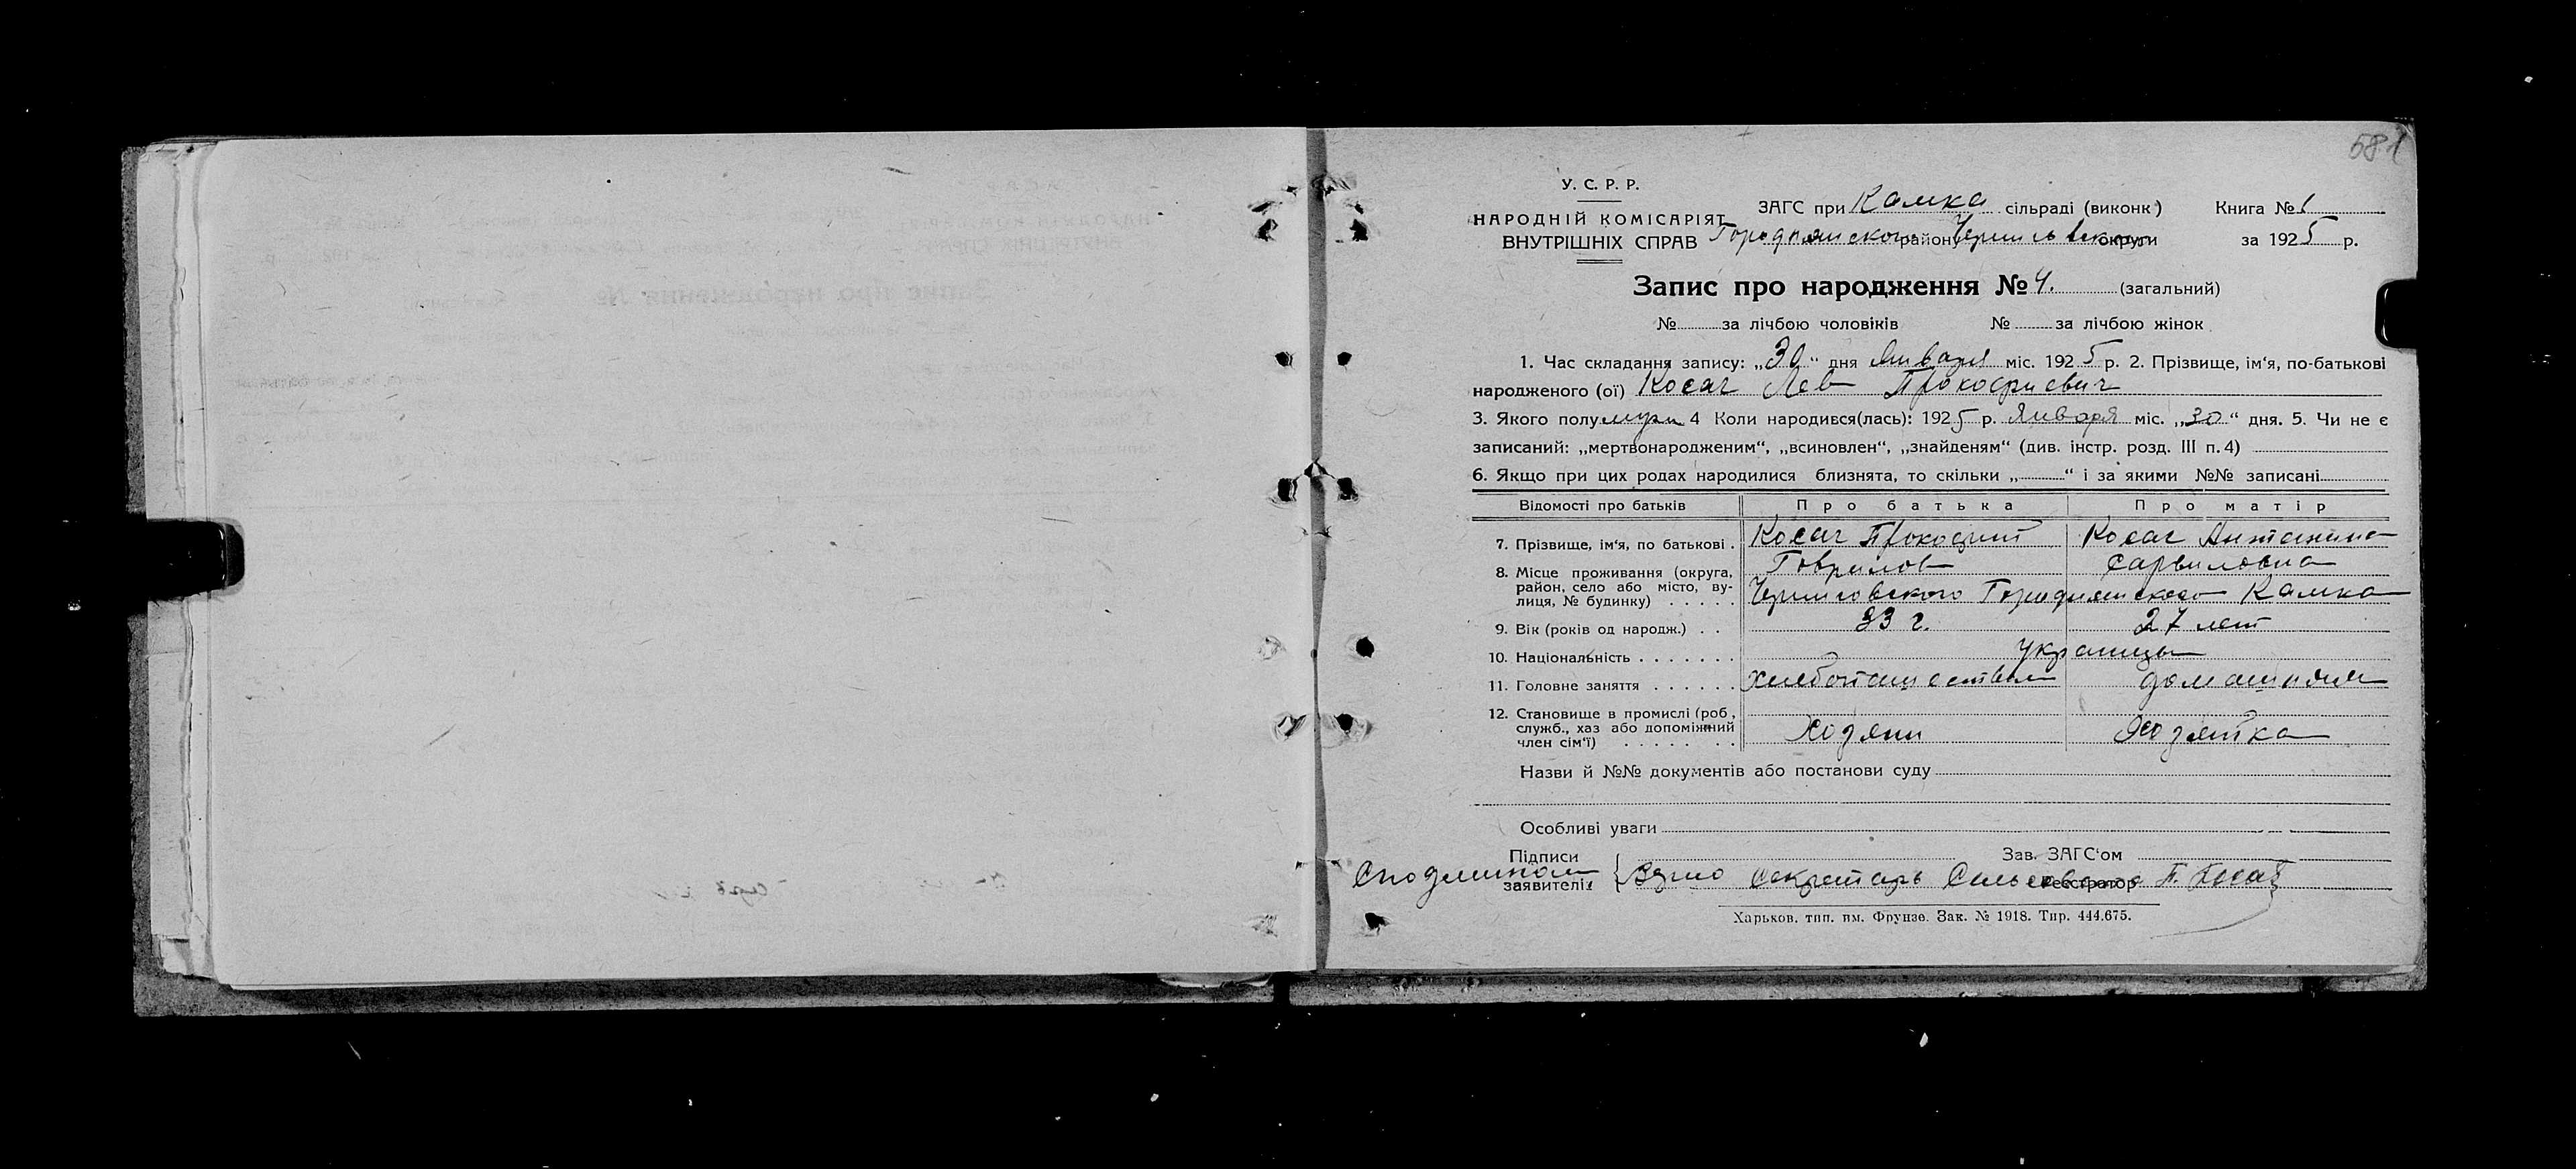 581
У. С. Р. Р.
НАРОДНІЙ КОМІСАРІЯТ
ВНУТРІШНІХ СПРАВ
ЗАГС при Камка сільраді (виконк) Книга № 1
Городнянского району Черниговского округи за 1925 р.
Запис про народження № 4. (загальний)
№ за лічбою чоловіків № за лічбою жінок
1. Час складання запису: „30“ дня Января міс. 1925 р. 2. Прізвище, ім‘я, по-батькові
народженого (ої) Косач Лев Прокофиевич
3. Якого полу муж 4 Коли народився(лась): 1925 р. Января міс. „30“ дня. 5. Чи не є
записаний: „мертвонародженим“, „всиновлен“, „знайденям“ (див. інстр. розд. III п. 4)
6. Якщо при цих родах народилися близнята, то скільки „ “ і за якими №№ записані
Відомості про батьків Про батька Про матір
7. Прізвище, ім‘я, по батькові . Косач Прокофий Косач Антонина
Гаврилов
8. Місце проживання (округа, район, село або місто, вулиця, № будинку) . . . . . Черниговского Городнянского Камка
9. Вік (років од народж.) . . 33 г. 27 лет
10. Національність . . . . . . . Украинцы
11. Головне заняття . . . . . . Хлебопашество домашняя
12. Становище в промислі (роб., служб., хаз або допоміжний член сім‘ї) . . . . . . . . Ходяин Ходяйка
Назви й №№ документів або постанови суду
Особливі уваги
Підписи
заявителів
Зав. ЗАГС‘ом
С подлинном верно Секретарь Сельсовета П. Косач
Реєстратор
Харьков, тип. им. Фрунзе. Зак. № 1918. Тир. 444.675.